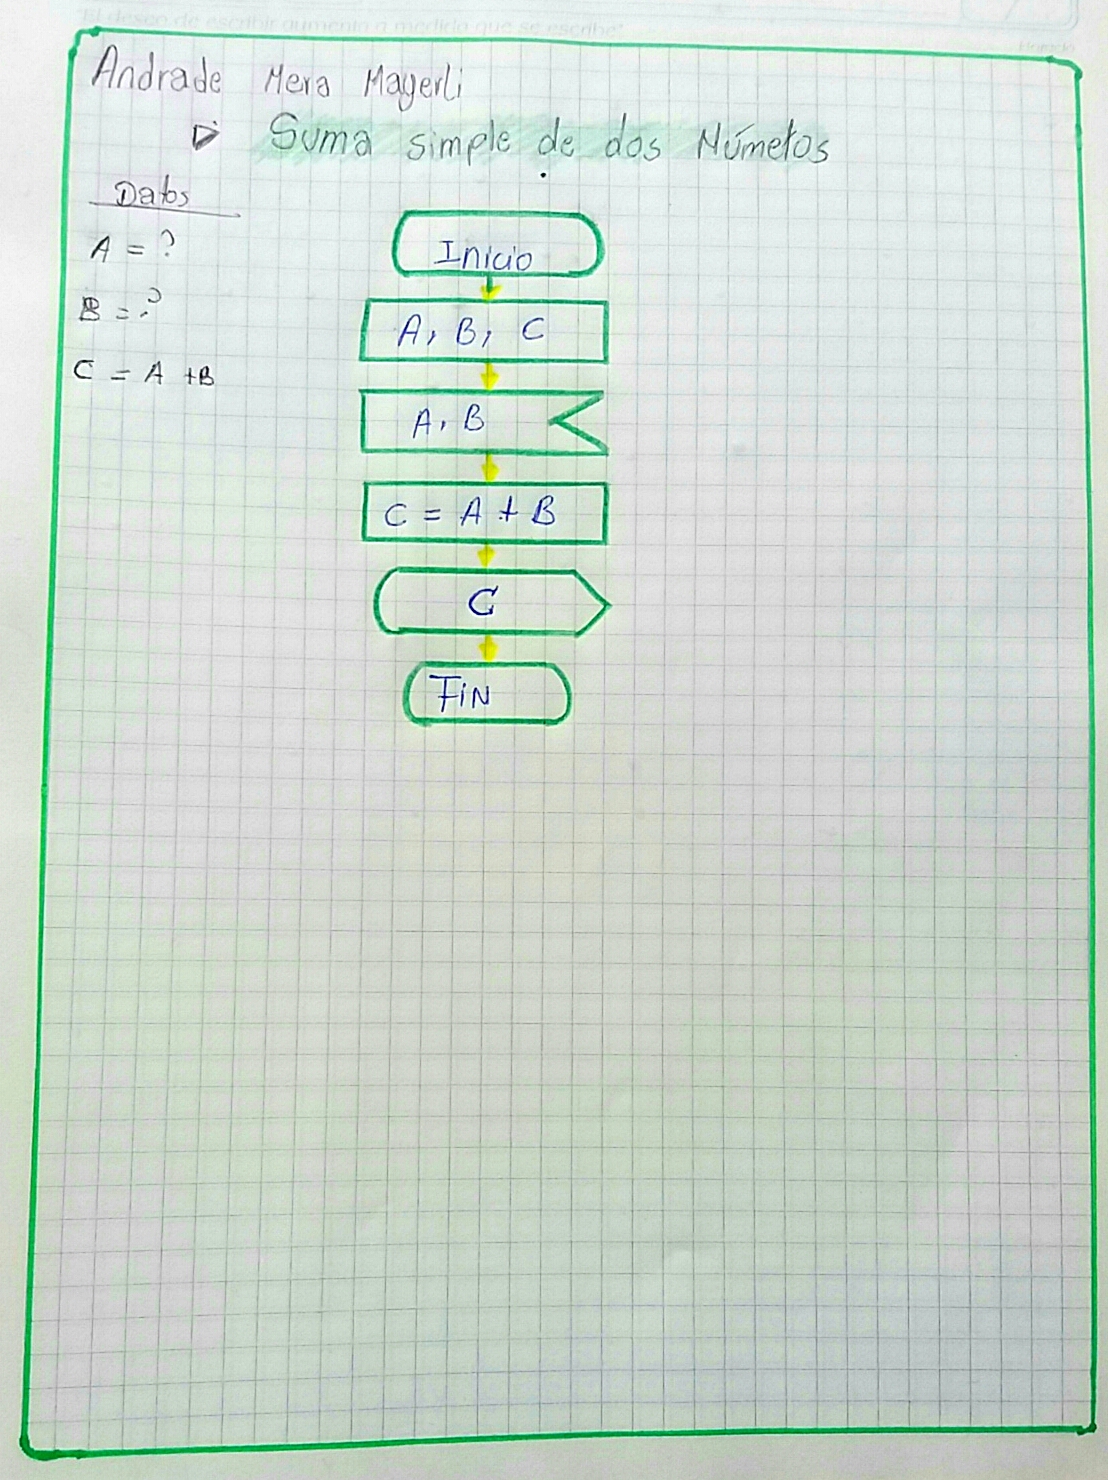 "El deseo de escribir aumenta a medida que se escribe"
Horacio
Andrade Mera Mayerli
Suma simple de dos Números
Datos
A = ?
B = ?
C = A + B
Inicio
A, B, C
A, B
C = A + B
C
FiN